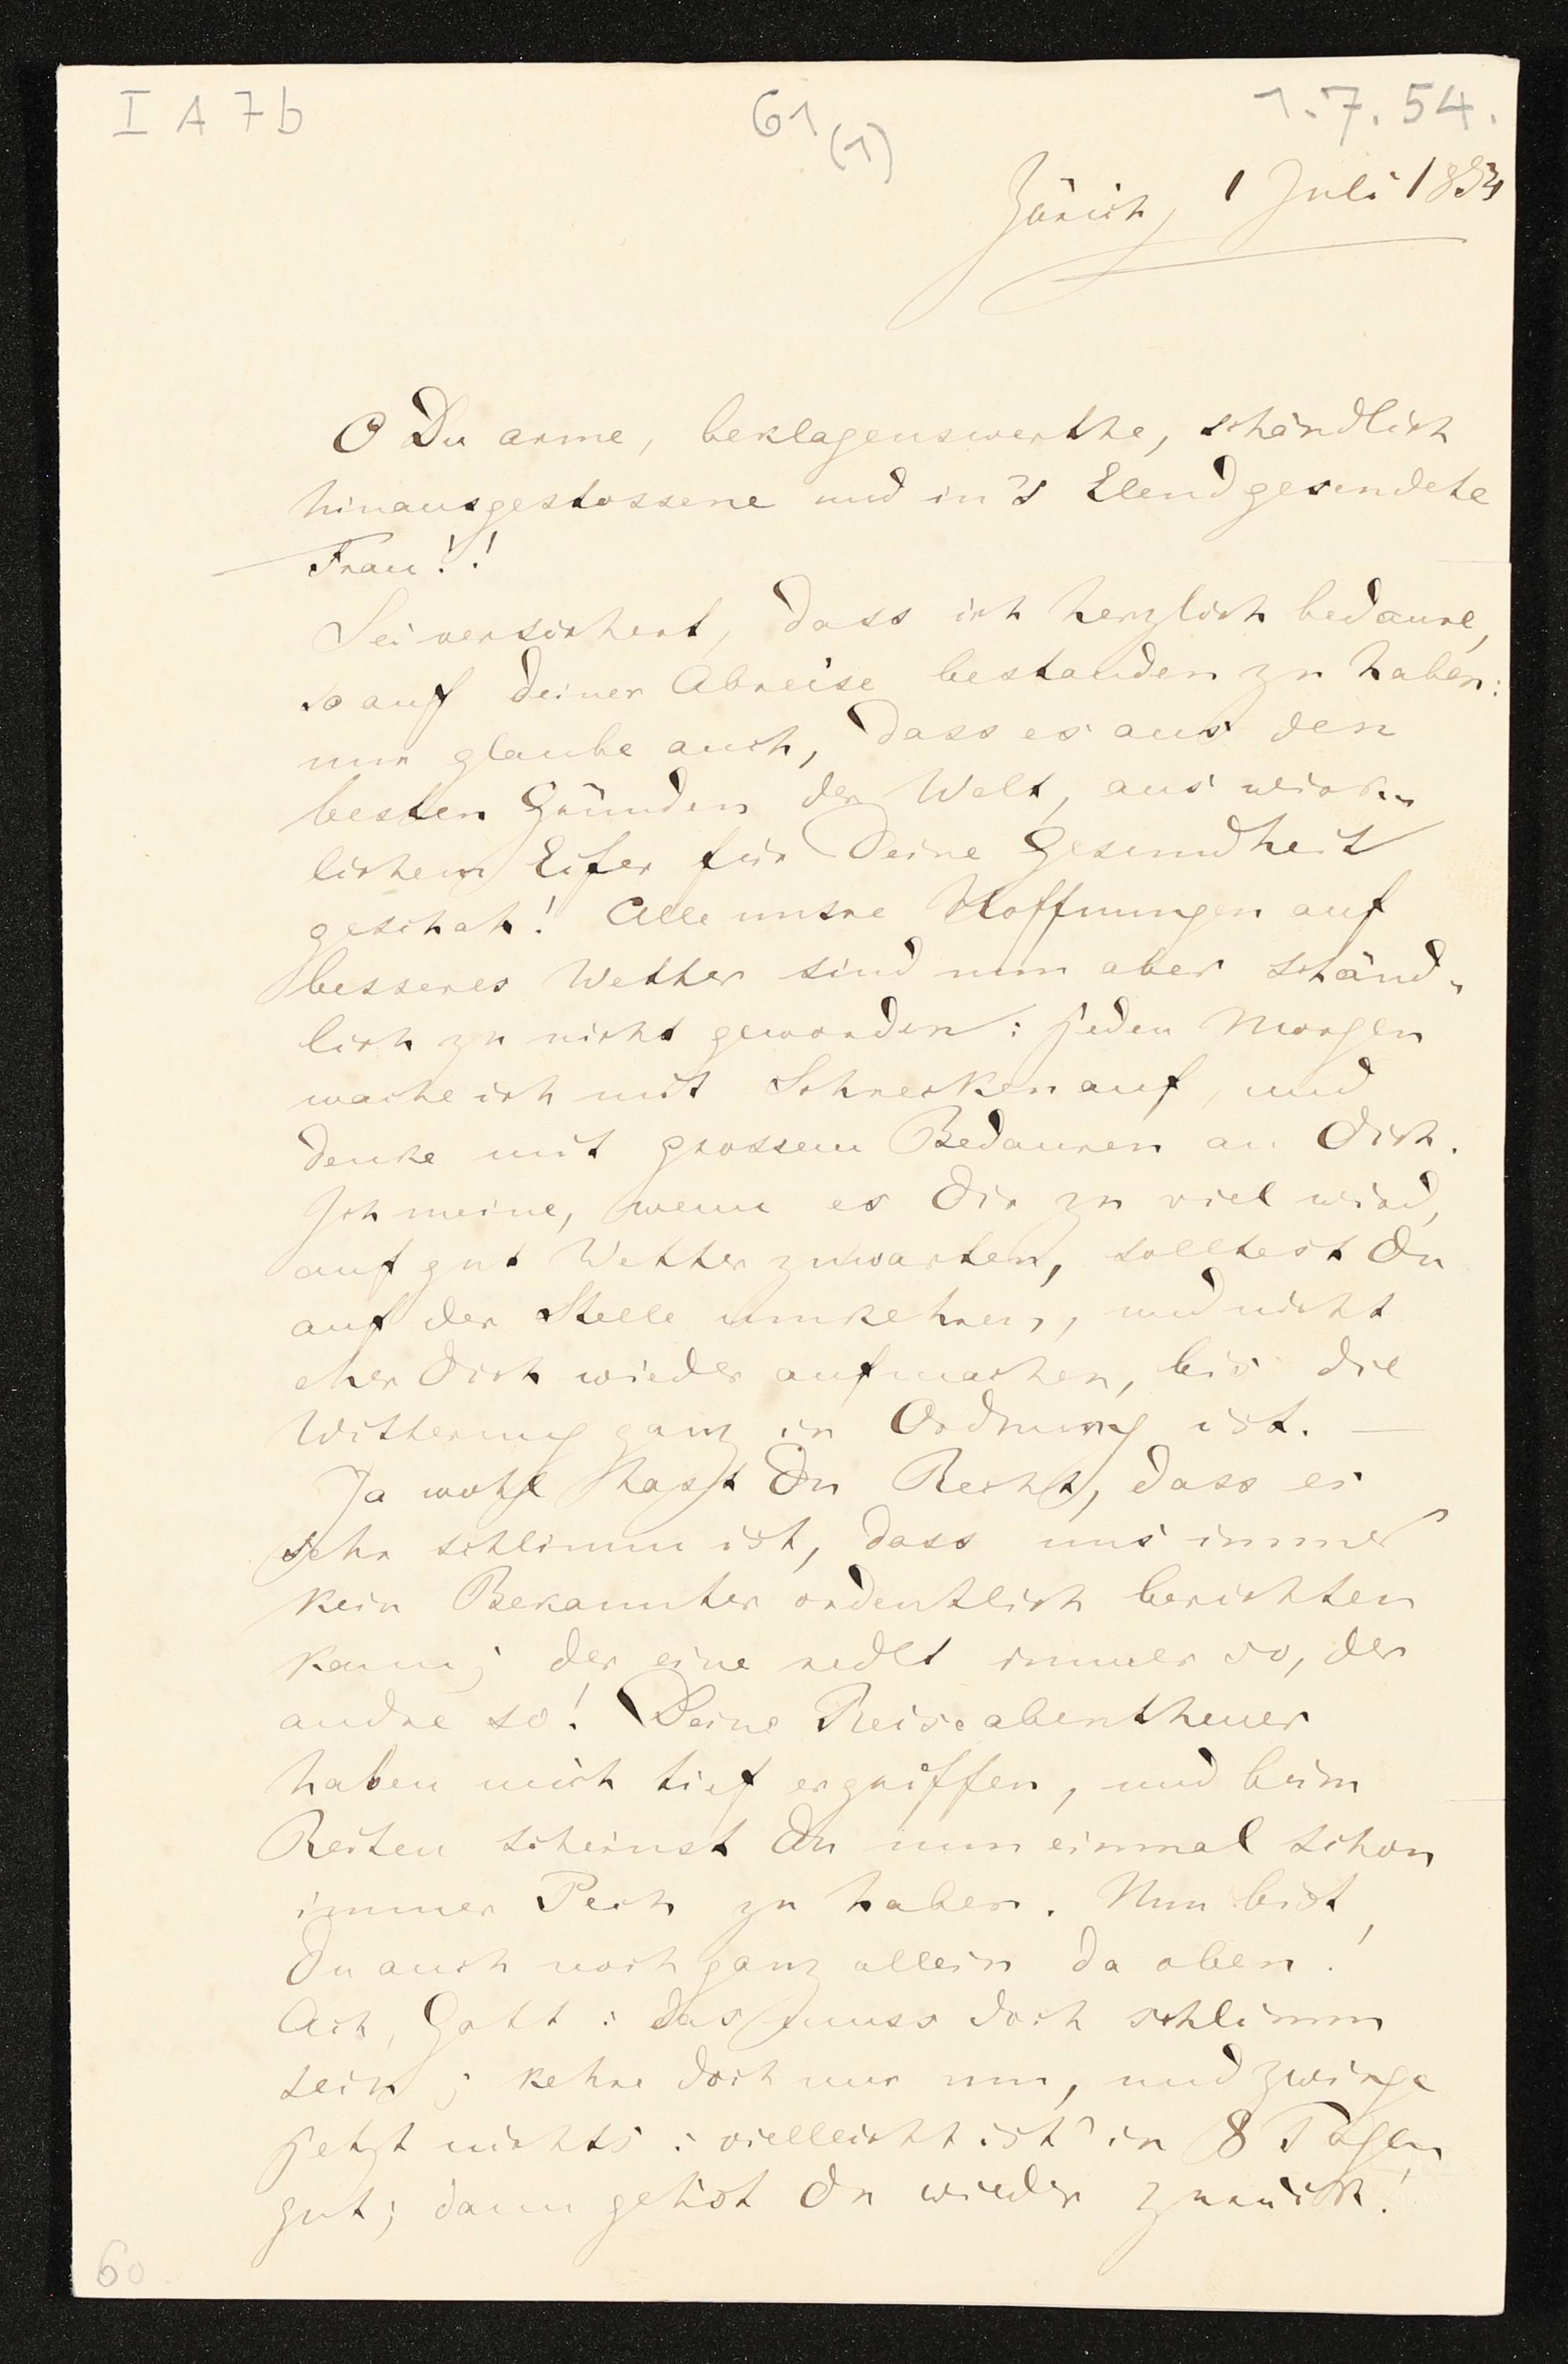 I A 7b
61
(1)
1.7.54.
Zürich, 1 Juli 1854
O Du arme, beklagenswerthe, schändlich
hinausgestossene und in's Elend gesendete
Frau!!
Sei versichert, dass ich herzlich bedaure,
so auf deiner Abreise bestanden zu haben:
nur glaube auch, dass es aus den
besten Gründen der Welt, aus wirk-
lichem Eifer für Deine Gesundheit
geschah! Alle unsre Hoffnungen auf
besseres Wetter sind nun aber schänd-
lich zu nicht geworden: jeden Morgen
wache ich mit Schrecken auf, und
denke mit grossem Bedauren an Dich.
Ich meine, wenn es Dir zu viel wird,
auf gut Wetter zu warten, solltest Du
auf der Stelle umkehren, und nicht
eher Dich wieder aufmachen, bis die
Witterung ganz in Ordnung ist. —
Ja wohl hast Du Recht, dass es
sehr schlimm ist, dass uns immer
kein Bekannter ordentlich berichten
kann; der eine redet immer so, der
andre so! Deine Reiseabentheuer
haben mich tief ergriffen, und beim
Reiten scheinst Du nun einmal schon
immer Pech zu haben. Nun bist
Du auch noch ganz allein da oben!
Ach, Gott: das muss doch schlimm
sein; kehre doch nur um, und zwinge
jetzt nichts: vielleicht ist's in 8 Tagen
gut; dann gehst Du wieder zurück!
60